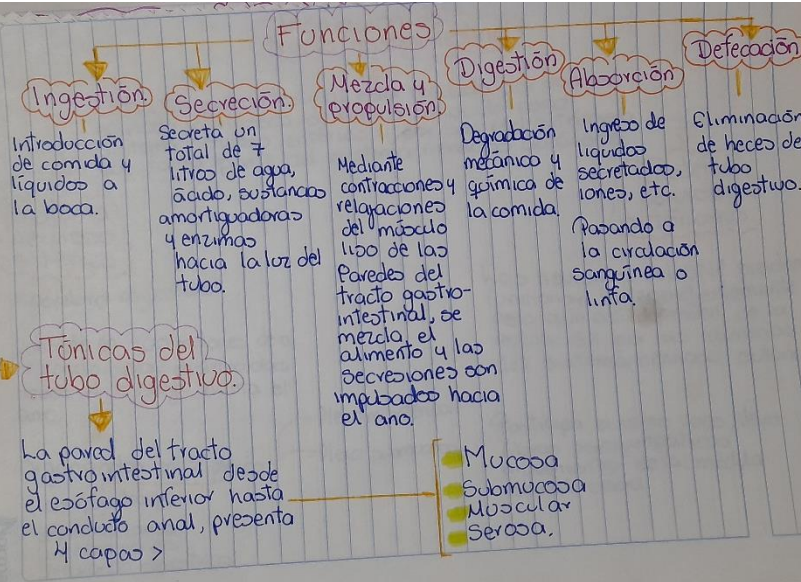 Funciones
Ingestión.
Introducción
de comida y
líquidos a
la boca.
Secreción.
Secreta un
total de 7
litros de agua,
ácido, sustancias
amortiguadoras
y enzimas
hacia la luz del
tubo.
Mezcla y
propulsión
Mediante
contracciones y
relajaciones
del músculo
liso de las
Paredes del
tracto gastro-
intestinal, se
mezcla, el
alimento y las
secresiones son
impulsados hacia
el ano.
Digestión
Degradación
mecánico y
química de
la comida.
Absorción
Ingreso de
líquidos
secretados,
iones, etc.
Pasando a
la circulación
sanguínea o
linfa.
Defecación
Eliminación
de heces de
tubo
digestivo.
Túnicas del
tubo digestivo.
La pared del tracto
gastrointestinal desde
el esófago inferior hasta
el conducto anal, presenta
4 capas >
Mucosa
Submucosa
Muscular
Serosa.